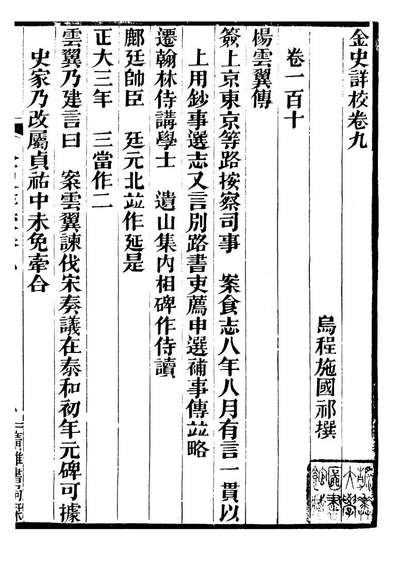 金史詳校卷九
烏程施國祁撰
卷一百十
楊雲翼傳
簽上京東京等路按察司事 案食志八年八月有言一貫以
上用鈔事選志又言別路書吏薦申選補事傳竝略
遷翰林侍講學士 遺山集內相碑作侍讀
鄜延帥臣 廷元北竝作延是
正大三年 三當作二
雲翼乃建言曰 案雲翼諫伐宋奏議在泰和初年元碑可據
史家乃改屬貞祐中未免牽合